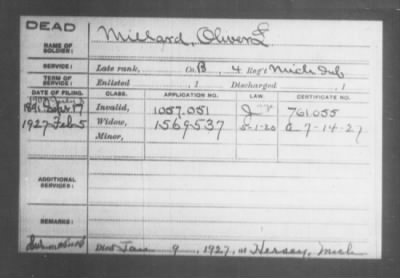 DEAD
NAME OF SOLDIER: Millard, Oliver L
SERVICE: Late rank, Co. B, 4 Reg't Mich Inf.
TERM OF SERVICE: Enlisted , 1 Discharged , 1
DATE OF FILING. CLASS. APPLICATION NO. LAW. CERTIFICATE NO.
1891 Invalid, 1057.051 761055
1927 Feb 5 Widow, 1569537 5-1-20 7-14-27
Minor,
ADDITIONAL SERVICES:
REMARKS:
Died Jan 9, 1927, at Hersey, Mich